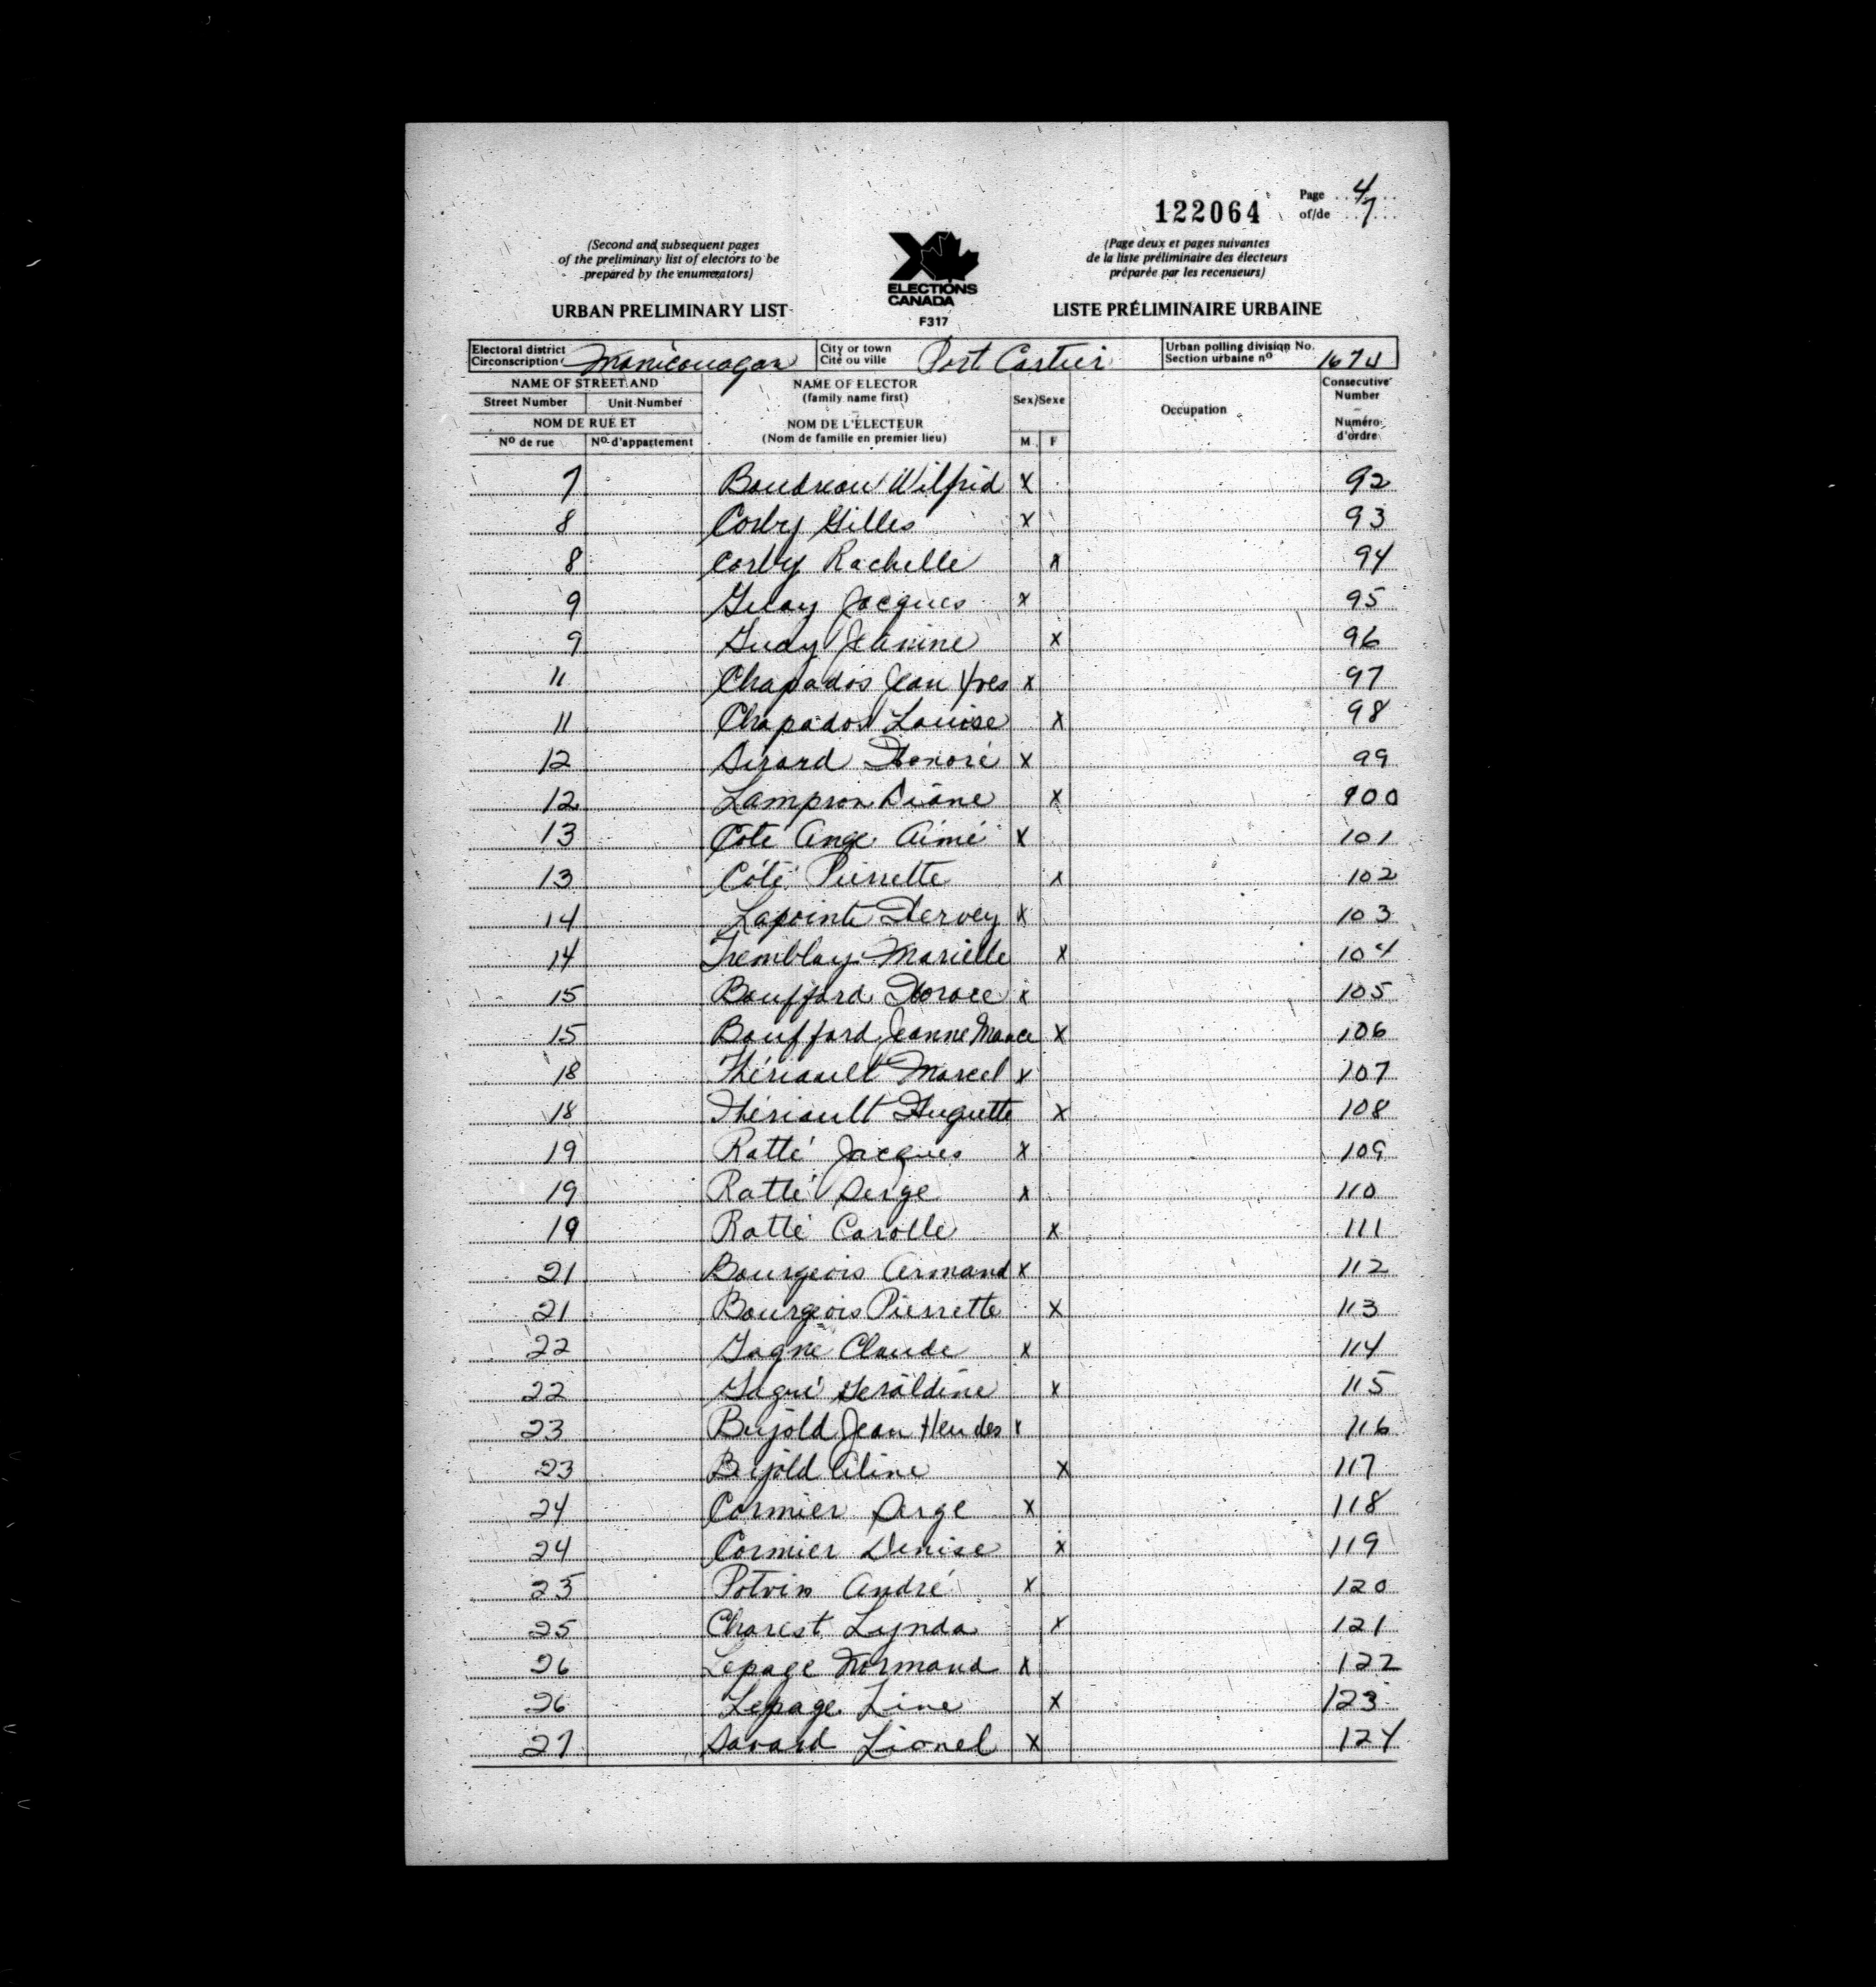 122064
Page 4
of/de 7
(Second and subsequent pages
of the preliminary list of electors to be
prepared by the enumerators)
(Page deux et pages suivantes
de la liste préliminaire des électeurs
préparée par les recenseurs)
ELECTIONS
CANADA
F317
URBAN PRELIMINARY LIST
LISTE PRÉLIMINAIRE URBAINE
Electoral district
Circonscription Manicouagan
City or town
Cité ou ville Port Cartier
Urban polling division No.
Section urbaine nº 167
NAME OF STREET AND
Street Number Unit Number
NOM DE RUE ET
Nº de rue Nº d'appartement
NAME OF ELECTOR
(family name first)
NOM DE L'ÉLECTEUR
(Nom de famille en premier lieu)
Sex/Sexe
M F
Occupation
Consecutive
Number
Numéro
d'ordre
7 Boudreau Wilfrid X 92
8 Corby Gilles X 93
8 Corby Rachelle X 94
9 Guay Jacques X 95
9 Guay Jeanine X 96
11 Chapados Jean Yves X 97
11 Chapados Louise X 98
12 Sirard Honoré X 99
12 Lampron Diane X 100
13 Coté Ange Aimé X 101
13 Côté Pierrette X 102
14 Lapointe Hervey X 103
14 Tremblay Marielle X 104
15 Bouffard Horace X 105
15 Bouffard Jeanne Mance X 106
18 Thériault Marcel X 107
18 Thériault Huguette X 108
19 Ratté Jacques X 109
19 Ratté Serge X 110
19 Ratté Carolle X 111
21 Bourgeois Armand X 112
21 Bourgeois Pierrette X 113
22 Gagné Claude X 114
22 Gagné Geraldine X 115
23 Bujold Jean Heudes X 116
23 Bujold Aline X 117
24 Cormier Serge X 118
24 Cormier Denise X 119
25 Potvin André X 120
25 Charest Lynda X 121
26 Lepage Normand X 122
26 Lepage Line X 123
27 Savard Lionel X 124